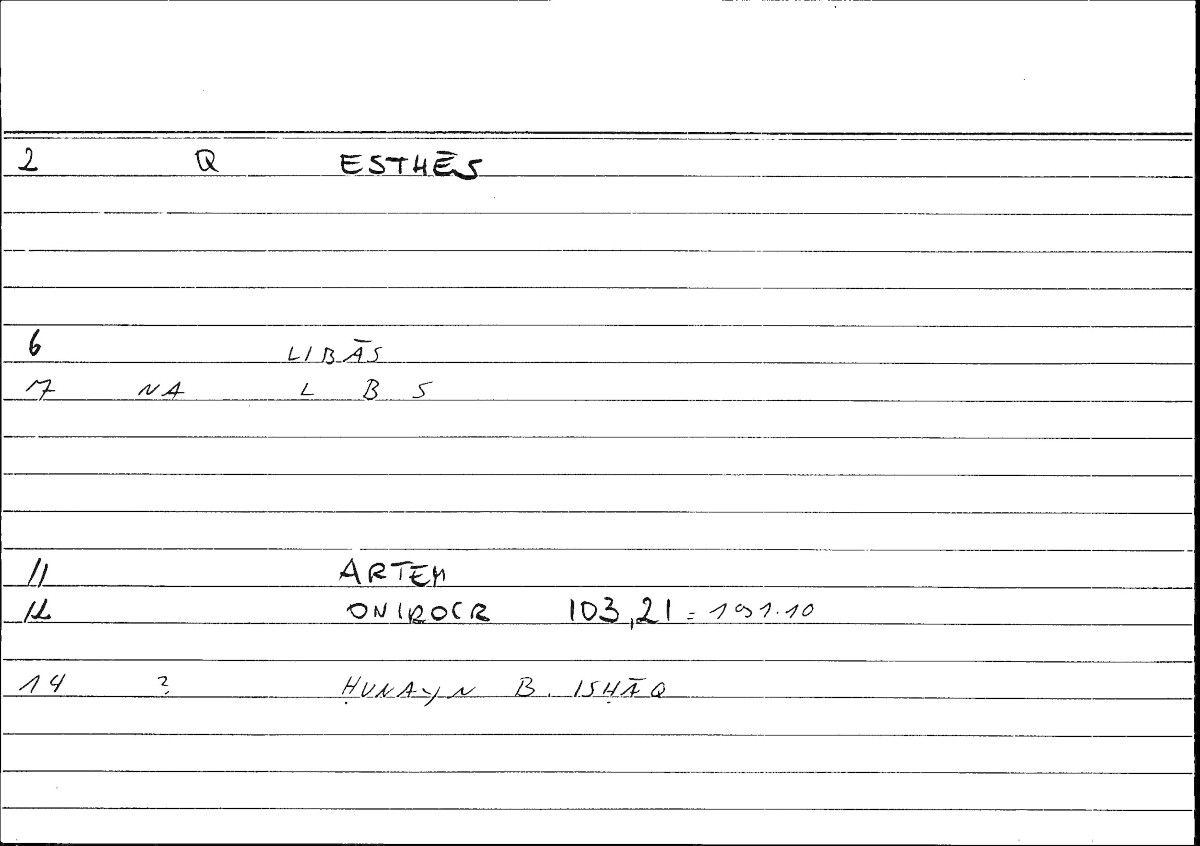 2 Q ESTHĒS
6 LIBĀS
7 NA L B S
11 ARTEM
12 ONIROCR 103,21 = 191.10
14 ? ḤUNAYN B. ISḤĀQ